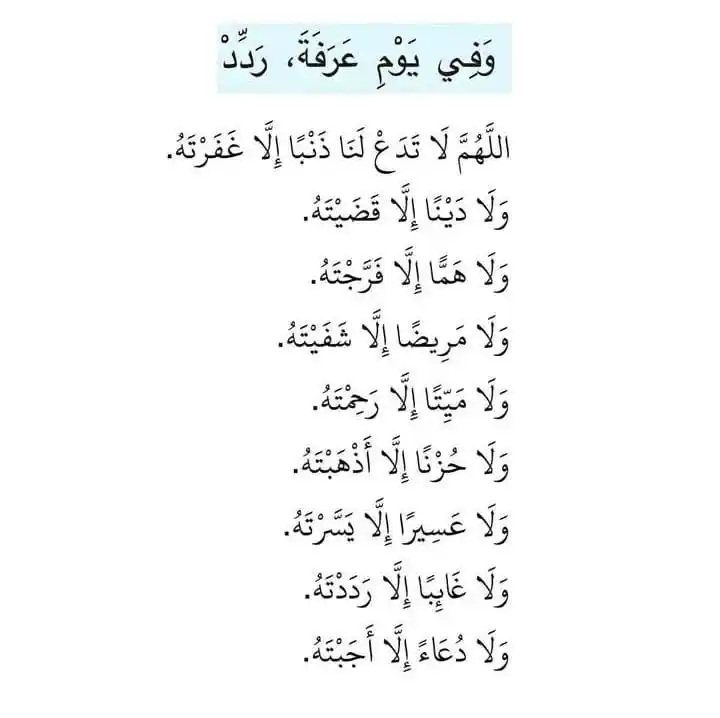 وَفِي يَوْمِ عَرَفَةَ، رَدِّدْ
اللَّهُمَّ لَا تَدَعْ لَنَا ذَنْبًا إِلَّا غَفَرْتَهُ.
وَلَا دَيْنًا إِلَّا قَضَيْتَهُ.
وَلَا هَمًّا إِلَّا فَرَّجْتَهُ.
وَلَا مَرِيضًا إِلَّا شَفَيْتَهُ.
وَلَا مَيِّتًا إِلَّا رَحِمْتَهُ.
وَلَا حُزْنًا إِلَّا أَذْهَبْتَهُ.
وَلَا عَسِيرًا إِلَّا يَسَّرْتَهُ.
وَلَا غَائِبًا إِلَّا رَدَدْتَهُ.
وَلَا دُعَاءً إِلَّا أَجَبْتَهُ.